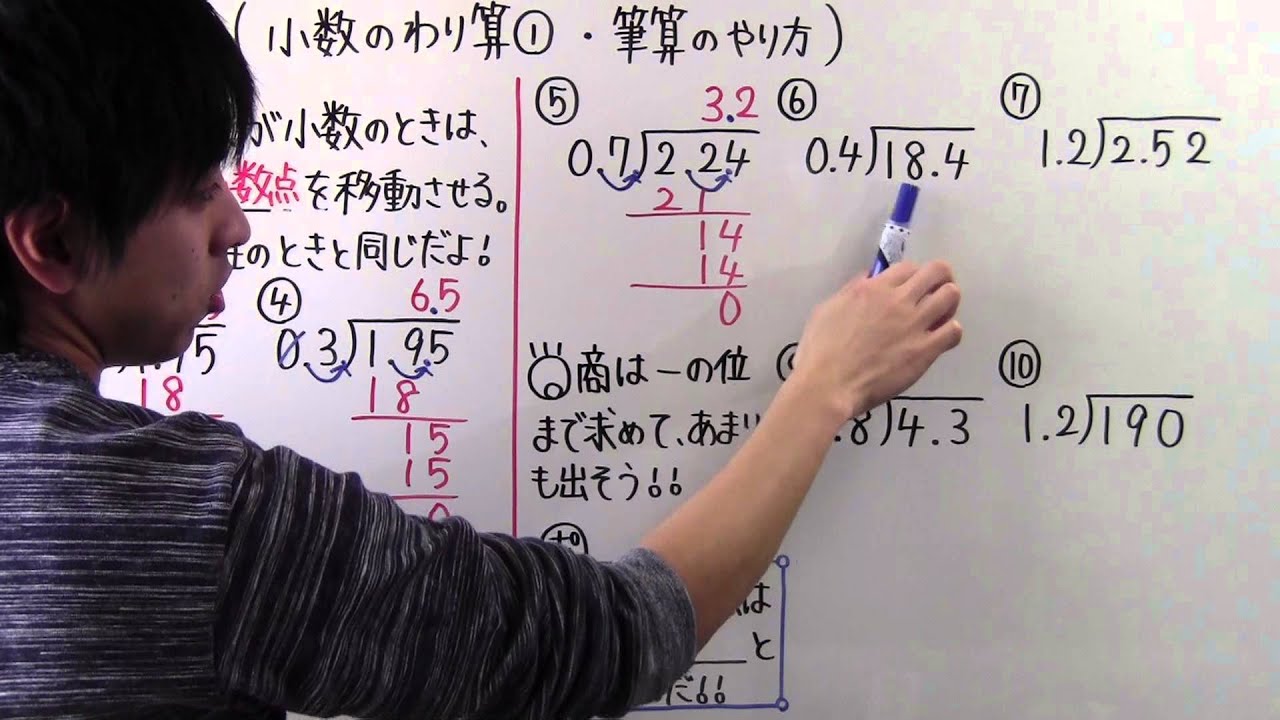 (小数のわり算①・筆算のやり方)
が小数のときは、
数点を移動させる。
のときと同じだよ!
④
6.5
0.3)1.95
18
15
15
0
18
⑤
3.2
0.7)2.24
21
14
14
0
⑥
0.4)18.4
⑦
1.2)2.52
商は一の位
まで求めて、あまり
も出そう!!
.8)4.3
⑩
1.2)190
は
と
だ!!